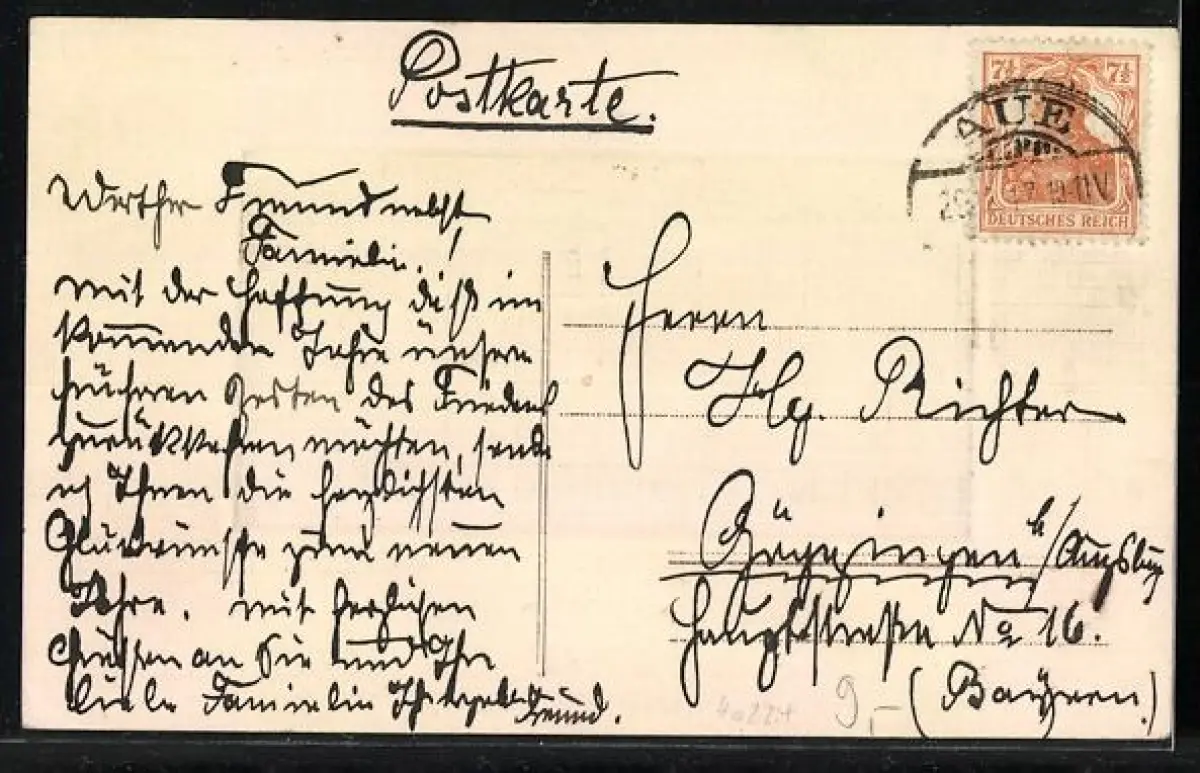 Postkarte.
7½ 7½
AUE
17. 10-11V
DEUTSCHES REICH
Werther Freund nebst
Familie!
Mit der Hoffnung daß im
kommenden Jahre unsere
früheren Zeiten des Friedens
zurückkehren möchten, sende
ich Ihnen die herzlichsten
Glückwünsche zum neuen
Jahre. Mit herzlichen
Grüßen an Sie und Ihre
liebe Familie Ihr Freund.
Herrn
Hg. Richter
Göggingen b/Augsburg
Hauptstraße No 16.
(Bayern.)
9,-